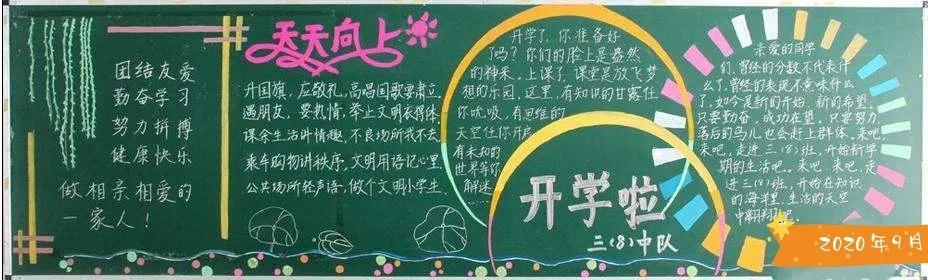 团结友爱
勤奋学习
努力拼搏
健康快乐
做相亲相爱的
一家人！
天天向上
升国旗，应敬礼，高唱国歌要肃立。
遇朋友，要热情，举止文明衣得体
课余生活讲情趣，不良场所我不去。
乘车购物讲秩序，文明用语记心里
公共场所轻声语，做个文明小学生。
开学了，你准备好
了吗？你们的脸上是盎然
的神采。上课了，课堂是放飞梦
想的乐园，这里，有知识的甘露任
你吮吸，有思维的
天空任你开启
有未知的
世界等你
解迷
开学啦
三（8）中队
亲爱的同学
们，曾经的分数不代表什
么了，曾经的表现不意味什么
了，如今是新的开始，新的希望。
只要勤奋，成功在望。只要努力，
落后的鸟儿也会赶上群体。来吧，
来吧，走进三（8）班，开始新学
期的生活吧。来吧，来吧，走
进三（8）班，开始在知识
的海洋里，生活的天空
中翱翔吧。
2020年9月